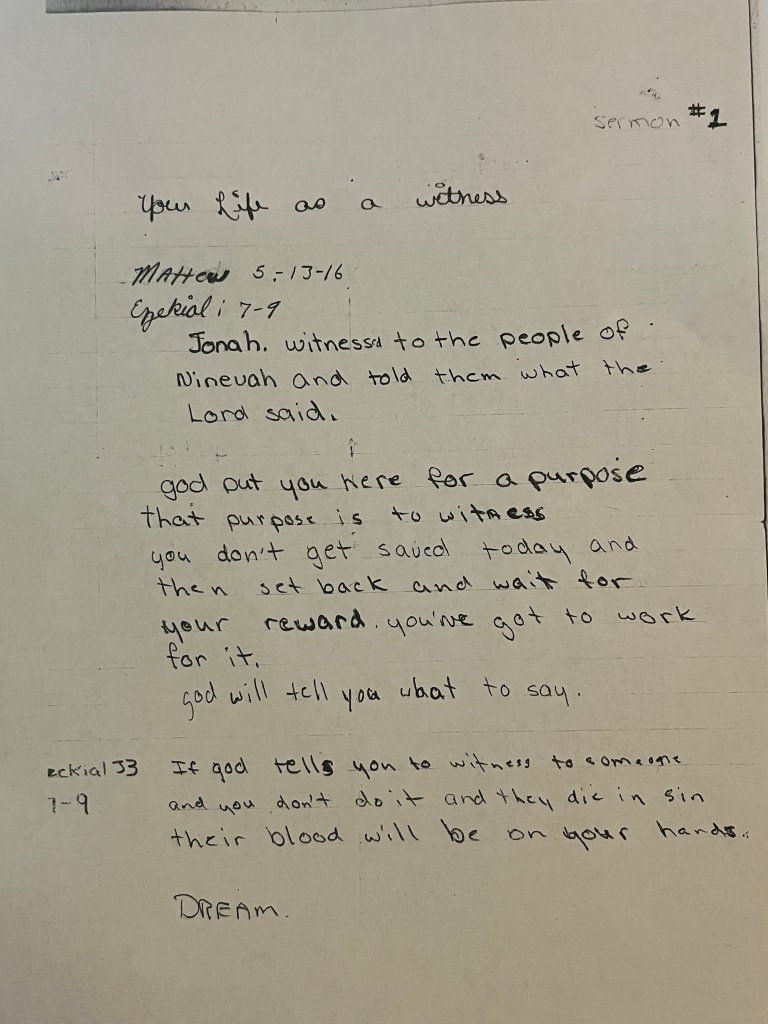 sermon #1
Your Life as a witness
Mattew 5:-13-16
Ezekial: 7-9
Jonah. witnessd to the people of
Ninevah and told them what the
Lord said.
god put you here for a purpose
that purpose is to witness
you don't get saved today and
then set back and wait for
your reward. you've got to work
for it.
god will tell you what to say.
eckial 33 If god tells you to witness to someone
7-9 and you don't do it and they die in sin
their blood will be on your hands..
DREAM.